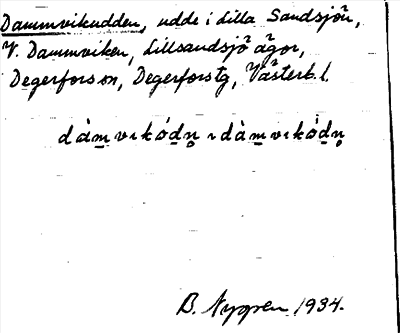 Dammvikudden, udde i Lilla Sandsjön,
V. Dammviken, Lillsandsjö ägor,
Degerfors sn, Degerfors tg, Västerb. l.
dàm̲vɩkód̲n̥ ɩ dàm̲vɩkód̲n̥
B. Nygren 1934.